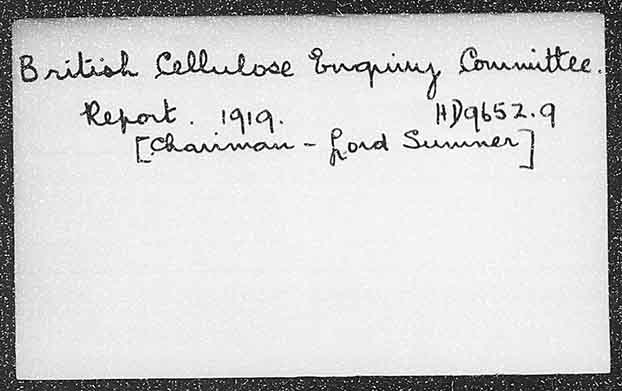 British Cellulose Enquiry Committee.
Report. 1919. HD9652.9
[Chairman - Lord Sumner]